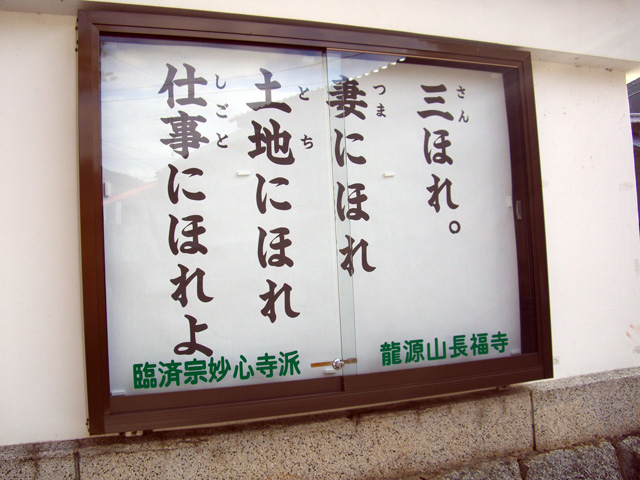 三ほれ。
さん
妻にほれ
つま
土地にほれ
とち
仕事にほれよ
しごと
龍源山長福寺
臨済宗妙心寺派